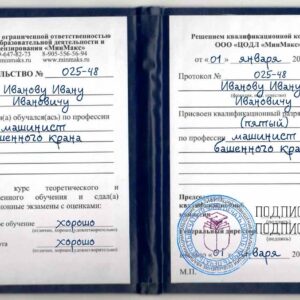 ограниченной ответственностью
образовательной деятельности и
лицензирования «МинМакс»
647-82-73 8-905-556-56-94
minmaks.ru www.minmaks.ru
ЛЬСТВО № 025-48
Иванову Ивану
Ивановичу
л(а) обучался(ась) по профессии
машинист
башенного крана
курс теоретического и
енного обучения и сдал(а)
ионные экзамены с оценками:
е обучение хорошо
(отлично, хорошо, удовлетворительно)
ота хорошо
(отлично, хорошо, удовлетворительно)
Решением квалификационной ко
ООО «ЦОДЛ «МинМакс»
от «01» января 20
Протокол № 025-48
Иванову Ивану
Ивановичу
Присвоен квалификационный разр
(пятый)
по профессии машинист
башенного кра
Предсе
квалификационной
комиссии ПОДПИС
Генеральный директор ПОДПИС
Выдано «01» января 20
М.П.